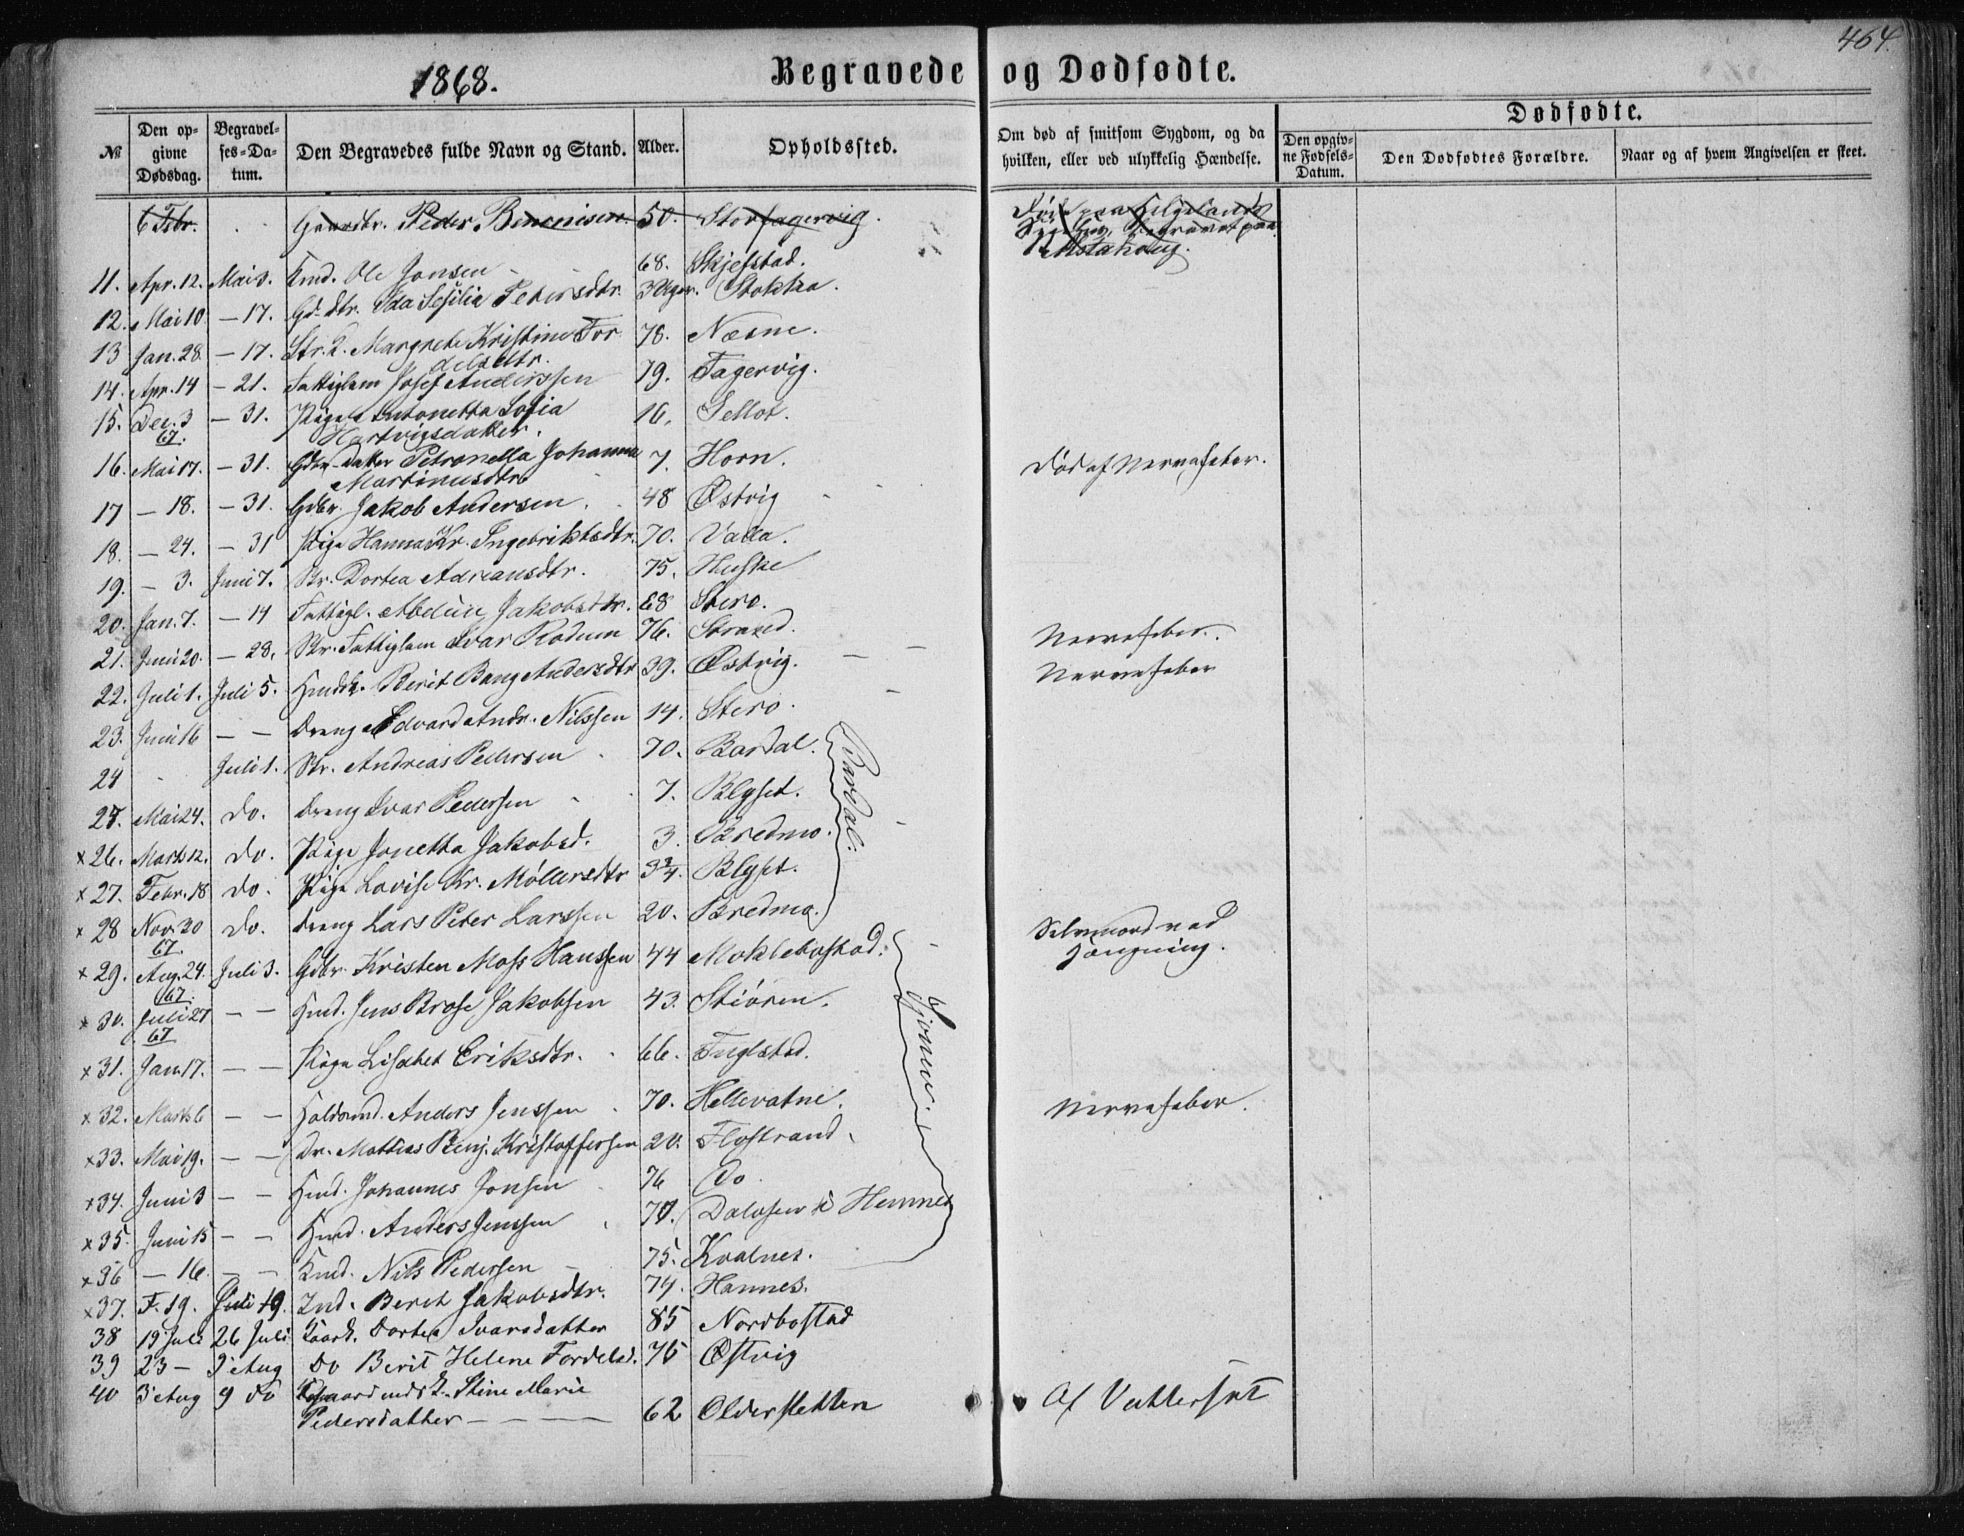 464.
1868. Begravede og Dødfødte.
№ Den opgivne Dødsdag. Begravelses-Datum. Den Begravedes fulde Navn og Stand. Alder. Opholdssted. Om død af smitsom Sygdom, og da hvilken, eller ved ulykkelig Hændelse. Dødfødte. Den opgivne Fødsels-Datum. Den Dødfødtes Forældre. Naar og af hvem Angivelsen er skeet.
6 Febr. Gaardbr. Peder Benonisen 50. Storfagervig.
Alstahoug.
11. Apr. 12. Mai 3. Kmd. Ole Jonsen 68. Skjefstad.
12. Mai 10 — 17. Gd. dtr. Ida Sesilia Petersdtr. 3 Uger. Stokka.
13 Jan. 28 — 17. Str. K. Margrete Kristine Tor
delsdtr. 78. Nesne.
14. Apr. 14 — 21. Fattiglem Josef Anderssen 79. Fagervig.
15. Dec. 3 — 31. Pige Antonetta Sofia 16.
67. Hartvigsdatter.
16. Mai 17. — 31. Gdbr. datter Petronella Johanna 7. Horn. Død af Nervefeber.
Martinusdtr.
17 — 18. — 31. Gdbr. Jakob Andersen. 48 Østvig
18. — 24. — 31 Pige Hanna Kr. Ingebriktsdtr. 70. Valla.
19. — 3. Juni 7. Str. Dortea Adriansdtr. 75. Huske
20. Jan. 7. — 14 Fattigl. Abelüne Jakobsdtr. 68 Stero.
21. Juni 20. — 28. Str. Fattiglem Ivar Rodum 76. Strand. Nervefeber.
22. Juli 1. Juli 5. Hmdsk. Berit Bang Andersdtr 39. Østvig. Nervefeber
23. Juni 16 — — Dreng Edvard Andr. Nilssen 14. Stero.
24 Juli 1. Str. Andreas Pedersen 70. Bardal.
25. Mai 24. do. Dreng Ivar Pedersen 7. Blyset.
Bardal.
x 26. Marts 12. do. Pige Jonetta Jakobsd. 3. Bredmo.
x 27. Febr. 18 do. Pige Lovise Kr. Møllersdtr 3 3/4. Blyset.
x 28 Nov. 30 do. Dreng Lars Peter Larssen 20. Bredmo. Selvmord ved
67. Hængning.
x 29. Aug. 24. Juli 3. Gdbr. Kristen Moss Hanssen 44 Moklebostad.
67.
x 30. Juli 27 — — Hmd. Jens Brose Jakobsen 43. Stiøren.
67
Sjonen.
x 31. Jan. 17. — — Pige Lisabet Eriksdtr. 66. Fuglstad.
x 32. Marts 6 — — Holdsmd. Anders Jenssen 70. Hellevatne. Nervefeber.
x 33. Mai 19. — — Dr. Mattias Benj. Kristoffersen 20. Flostrand.
x 34. Juni 3 — — Hmd. Johannes Jonsen 76 do.
x 35. Juni 15 — — Hmd. Anders Jenssen 70. Dalosen i Hemnes
x 36 — 16. — — Kmd. Nils Pedersen 75. Kvalnes.
x 37. F. 19. Juli 19. Ind. Berit Jakobsdtr. 74. Hannes.
38 19 Juli 26 Juli Kaark. Dortea Ivarsdatter 85 Nordbostad
39 23 — 9 Aug Do Berit Helene Tordelsd. 76 Østvig
40 3 Aug 9 do Stine Marie
Pedersdatter — — — — 62 Oldersletten Af Vattersot